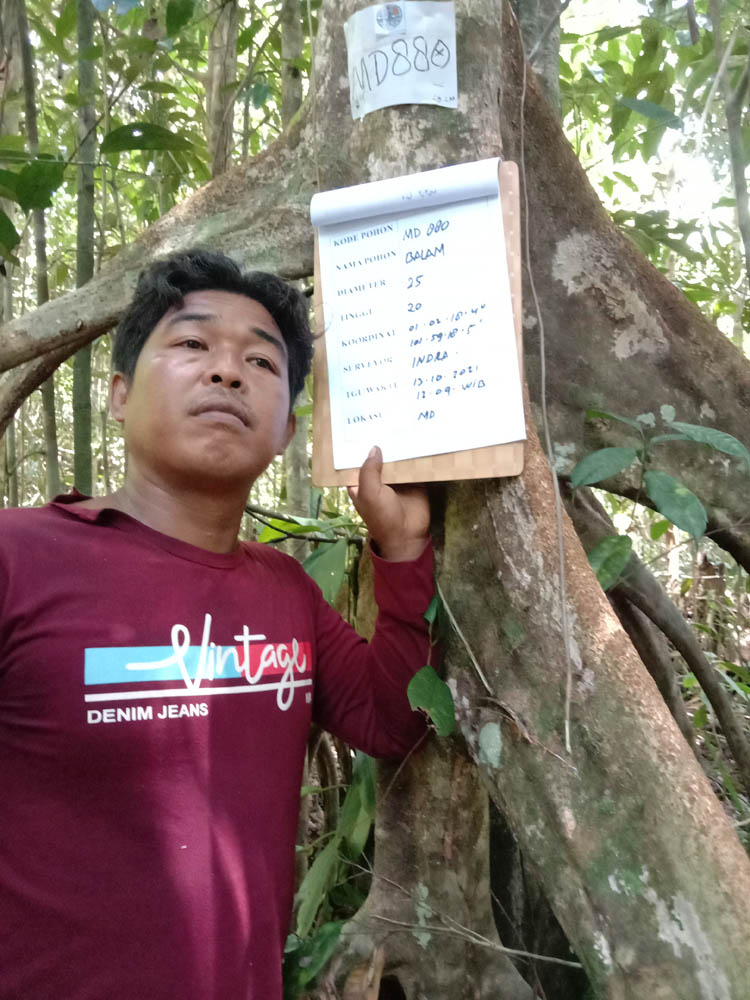 MD880
KODE POHON MD 880
NAMA POHON BALAM
DIAMETER 25
TINGGI 20
KOORDINAT 01.02.18.4"
101.59.18.5"
SURVEYOR INDRA.
TGL/WAKTU 13-10-2021
12.09.WIB
LOKASI MD
Vintage
DENIM JEANS